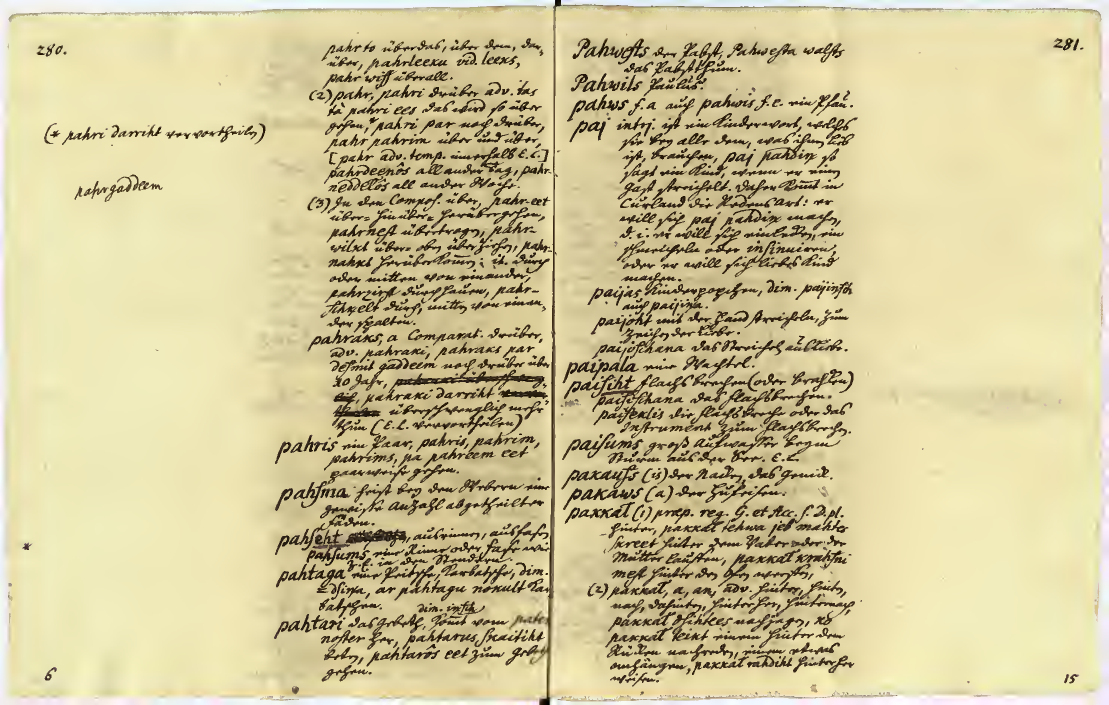 280.
(* pahri darriht vervortheilen)
pahrgaddeem
6
pahrto überdas, über dem, dar-
über, pahrleeku vid. leeks,
pahr wiss überall.
(2) pahr, pahri drüber adv. tas
ta pahri ees das wird so über
gehen,* pahri par noch drüber,
pahr pahrim über und über,
[pahr adv. temp. innerhalb E.L.]
pahrdeenôs all ander Tag, pahr-
neddelôs all ander Woche.
(3) In den Compos. über, pahr-eet
über- hinüber- herübergehen,
pahrnest übertragen, pahr-
wilkt über- oben überziehen, pahr-
nahkt herüberkommen; it. durch
oder mitten von einander,
pahrzirst durchhauen, pahr-
schkelt durch, mitten von einan-
der spalten.
pahraks, a Comparat. drüber,
adv. pahraki, pahraks par
desmit gaddeem noch drüber über
10 Jahr,
pahraki darriht
überschwenglich mehr
thun (E.L. vervortheilen)
pahris ein Paar, pahris, pahrim,
pahrims, pa pahreem eet
paarweise gehen.
pahsma heist bey den Webern eine
gewisse Anzahl abgetheilter
Fäden.
pahseht ausrinnen, ausfasen
pahsums eine Rinne oder Fase wie
S.E. in den Stendern
pahtaga eine Peitsche, Karbatsche, dim.
= dsina, ar pahtagu nokult Kar
batschen.
dim. insch
pahtari das Gebeth, kommt vom pater
noster her, pahtarus skaitiht
beten, pahtarôs eet zum Gebet
gehen.
281.
Pahwests der Pabst, Pahwesta walsts
das Pabstthum.
Pahwils Paulus.
pahws f. a auch pahwis f. e. ein Pfau.
paj intrj. ist ein Kinderwort, welches
sie bey alle dem, was ihnen lieb
ist, brauchen, paj pahdin so
sagt ein Kind, wenn er einen
Gast streichelt. Daher kommt in
Curland die Redensart: er
will sich paj pahdin machen,
d. i. er will sich einlieben, ein
schmeicheln oder insinuiren,
oder er will sich liebes Kind
machen.
paijas Kinderpopchen, dim. paijinsch
auch paijina.
paijoht mit der Hand streicheln, zum
Zeichen der Liebe.
paijoschana das Streicheln aus Liebe.
paipala eine Wachtel.
paisiht Flachs brechen (oder braken)
paisischana das Flachsbrechen.
paiseklis die Flachsbreche oder das
Instrument zum Flachsbrechen.
paisums groß Aufwasser beym
Sturm aus der See. E.L.
pakauss (is) der Nacken, das Genick.
pakaws (a) der Hufeisen.
pakkal (1) præp. reg. G. et Acc. s. D. pl.
hinter, pakkal tehwa jeb mahtes
skreet hinter dem Vater oder der
Mutter lauffen, pakkal krahsni
mest hinter den Ofen werfen,
(2) pakkal, a, an, adv. hinter, hinten,
nach, dahinter, hinterher, hinternach,
pakkal dsihtees nachjagen, ko
pakkal teikt einem hinter dem
Rücken nachreden, einem etwas
anhängen, pakkal rahdiht hinterher
weisen.
15